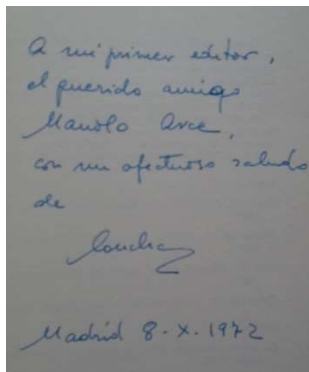 A mi primer editor,
el querido amigo
Manolo Arce,
con un afectuoso saludo
de
Concha
Madrid 8-X-1972